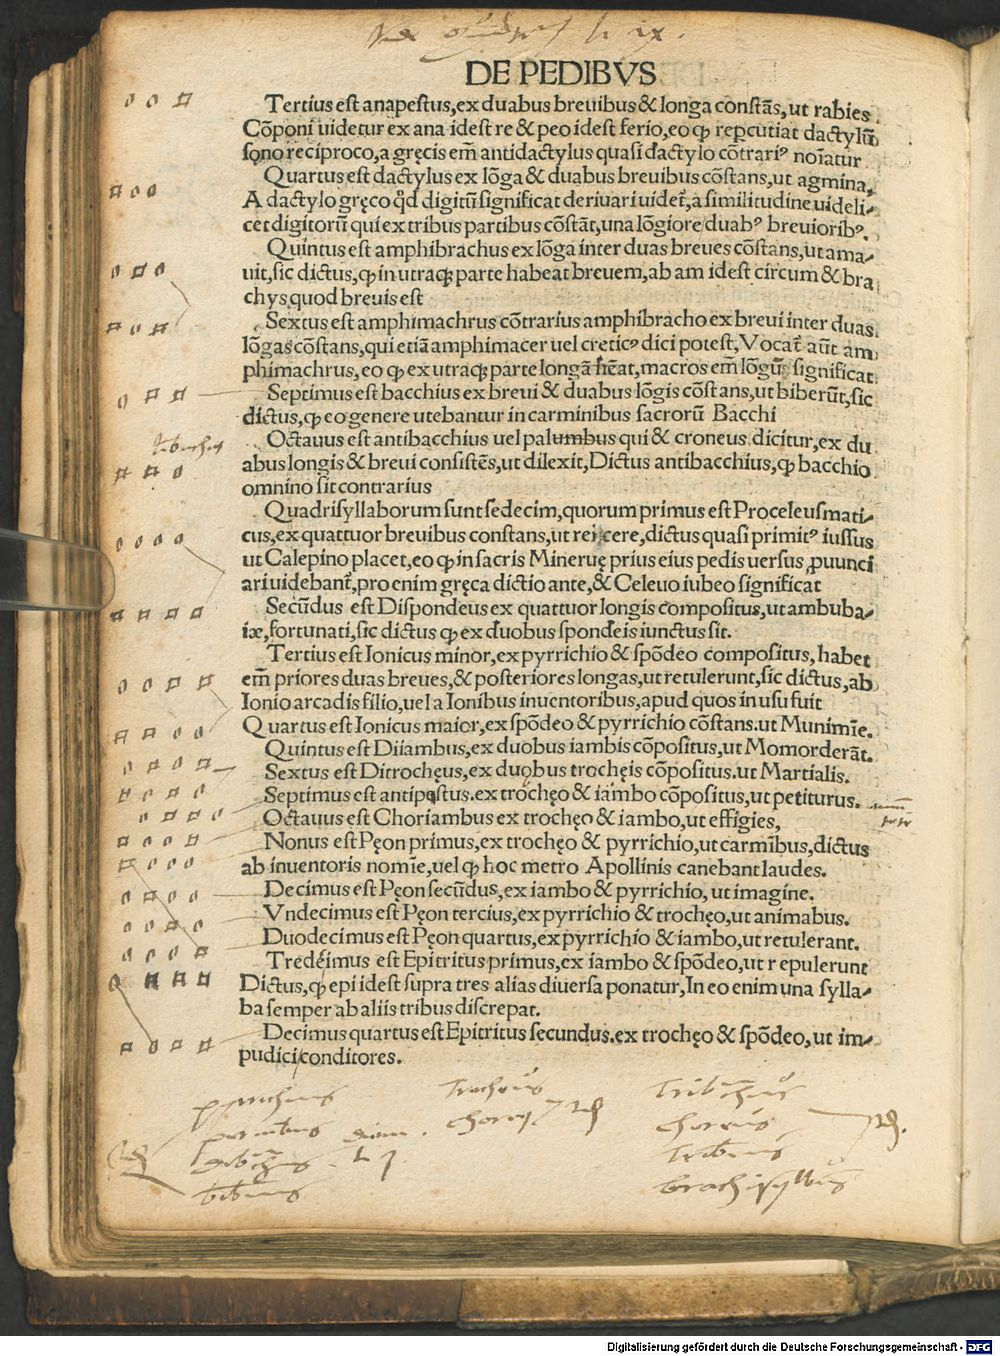 DE PEDIBVS
Tertius est anapestus, ex duabus breuibus & longa constās, ut rabies
Cōponi uidetur ex ana idest re & peo idest ferio, eo ꝙ repcutiat dactylū
sono reciproco, a gręcis em̄ antidactylus quasi dactylo cōtrariꝰ noīatur
Quartus est dactylus ex lōga & duabus breuibus cōstans, ut agmina,
A dactylo gręco qd̄ digitū significat deriuari uidet̄, a similitudine uideli⸗
cet digitorū qui ex tribus partibus cōstāt, una lōgiore duabꝰ breuioribꝰ.
Quintus est amphibrachus ex lōga inter duas breues cōstans, ut ama⸗
uit, sic dictus, ꝙ in utraqꝫ parte habeat breuem, ab am idest circum & bra
chys quod breuis est
Sextus est amphimachrus cōtrarius amphibracho ex breui inter duas
lōgas cōstans, qui etiā amphimacer uel creticꝰ dici potest, Vocat̄ aūt am
phimachrus, eo ꝙ ex utraqꝫ parte longā hēat, macros em̄ lōgū significat
Septimus est bacchius ex breui & duabus lōgis cōstans, ut biberūt, sic
dictus, ꝙ eo genere utebantur in carminibus sacrorū Bacchi
Octauus est antibacchius uel palumbus qui & croneus dicitur, ex du
abus longis & breui consistēs, ut dilexit, Dictus antibacchius, ꝙ bacchio
omnino sit contrarius
Quadrisyllaborum sunt sedecim, quorum primus est Proceleusmati⸗
cus, ex quattuor breuibus constans, ut reicere, dictus quasi primitꝰ iussus
ut Calepino placet, eo ꝙ in sacris Mineruę prius eius pedis uersus ꝓnunci
ari uidebant̄, pro enim gręca dictio ante, & Celeuo iubeo significat
Secūdus est Dispondeus ex quattuor longis compositus, ut ambuba⸗
iæ, fortunati, sic dictus ꝙ ex duobus spondeis iunctus sit.
Tertius est Ionicus minor, ex pyrrichio & spōdeo compositus, habet
em̄ priores duas breues, & posteriores longas, ut retulerunt, sic dictus, ab
Ionio arcadis filio, uel a Ionibus inuentoribus, apud quos in usu fuit
Quartus est Ionicus maior, ex spōdeo & pyrrichio cōstans. ut Munimīe.
Quintus est Diiambus, ex duobus iambis cōpositus, ut Momorderāt.
Sextus est Ditrochęus, ex duobus trochęis cōpositus. ut Martialis.
Septimus est antipastus. ex trochęo & iambo cōpositus, ut petiturus.
Octauus est Choriambus ex trochęo & iambo, ut effigies,
Nonus est Pęon primus, ex trochęo & pyrrichio, ut carmībus, dictus
ab inuentoris nomīe, uel ꝙ hoc metro Apollinis canebant laudes.
Decimus est Pęon secūdus, ex iambo & pyrrichio, ut imagine.
Vndecimus est Pęon tercius, ex pyrrichio & trochęo, ut animabus.
Duodecimus est Pęon quartus, ex pyrrichio & iambo, ut retulerant.
Tredecimus est Epitritus primus, ex iambo & spōdeo, ut repulerunt
Dictus, ꝙ epi idest supra tres alias diuersa ponatur, In eo enim una sylla⸗
ba semper ab aliis tribus discrepat.
Decimus quartus est Epitritus secundus. ex trochęo & spōdeo, ut im⸗
pudici conditores.
Digitalisierung gefördert durch die Deutsche Forschungsgemeinschaft - DFG